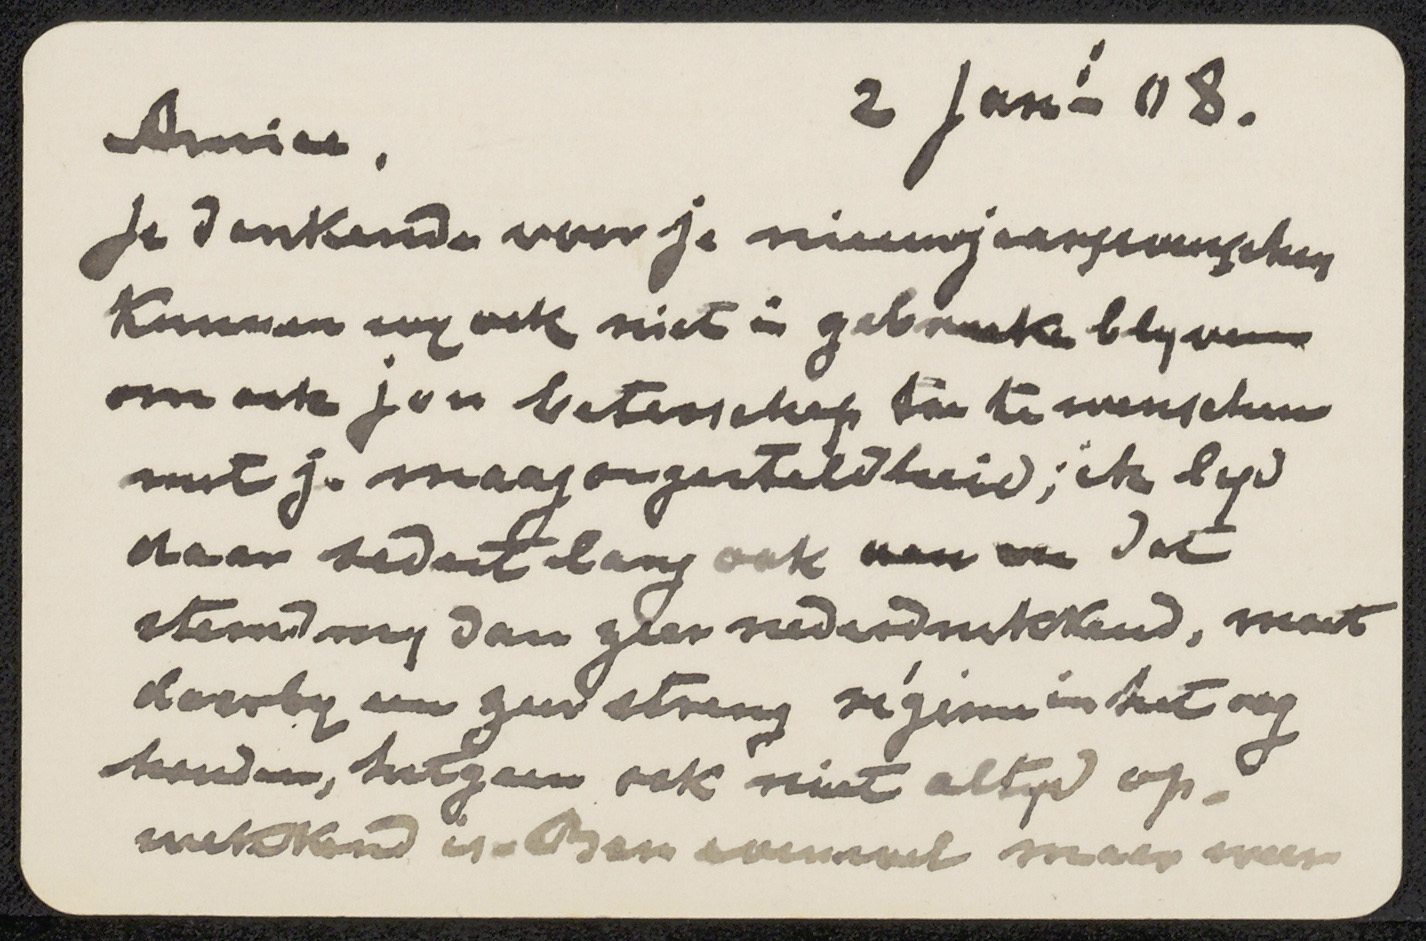 2 Jan: 08.
Amice,
Je dankende voor je nieuwjaarswenschen
kunnen wy ook niet in gebreke blyven
om ook jou beterschap toe te wenschen
met je maagongesteldheid; ik lyd
daar sedert lang ook aan en dat
stemd my dan zeer nederdrukkend, moet
daarby een zeer streng régime in het oog
houden, hetgeen ook niet altyd op-
wekkend is. Ben evenwel maar weer